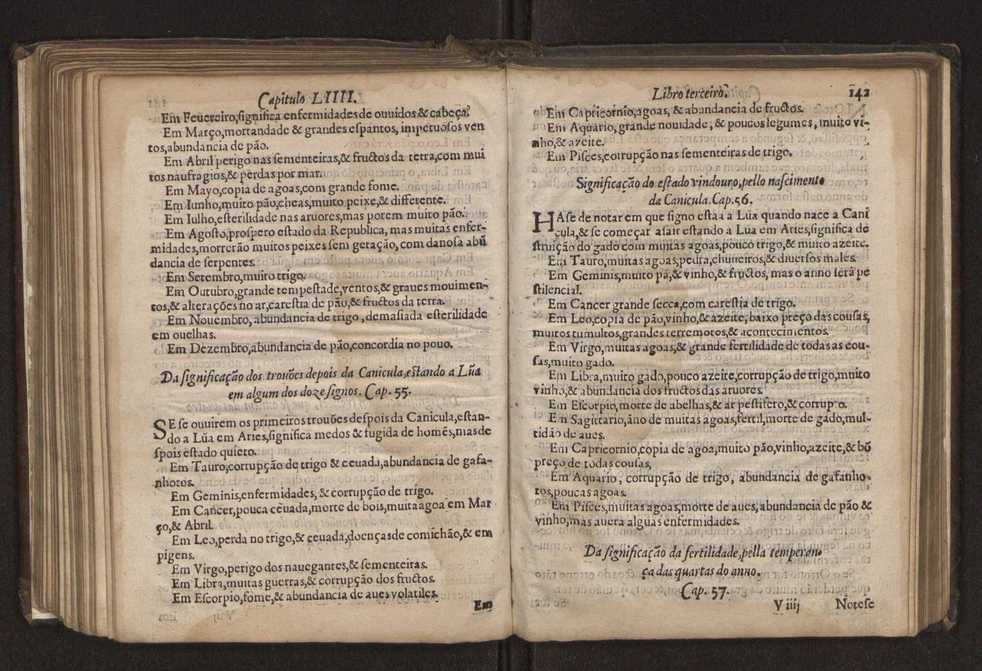 Capitulo LIIII.
Em Feuereiro,significa enfermidades de ouuidos,& cabeça.
Em Março,mortandade & grandes espantos, impetuosos ven
tos,abundancia de pão.
Em Abril perigo nas sementeiras,& fructos da terra,com mui
tos naufragios,& perdas por mar.
Em Mayo,copia de agoas,com grande fome.
Em Iunho,muito pão,cheas,muito peixe,& differente.
Em Iulho,esterilidade nas aruores,mas porem muito pão.
Em Agosto,prospero estado da Republica, mas muitas enfer-
midades,morrerão muitos peixes sem geração,com danosa abũ
dancia de serpentes.
Em Setembro,muito trigo.
Em Outubro,grande tempestade,ventos,& graues mouimen-
tos,& alterações no ar,carestia de pão,& fructos da terra.
Em Nouembro,abundancia de trigo, demasiada esterilidade
em ouelhas.
Em Dezembro,abundancia de pão,concordia no pouo.
Da significação dos trouões depois da Canicula,estando a Lũa
em algum dos doze signos. Cap. 55.
SE se ouuirem os primeiros trouões despois da Canicula,estan-
do a Lũa em Aries,significa medos & fugida de homẽs,mas de
spois estado quieto.
Em Tauro,corrupção de trigo & ceuada,abundancia de gafa-
nhotos.
Em Geminis,enfermidades, & corrupção de trigo.
Em Cancer,pouca ceuada,morte de bois,muita agoa em Mar
ço,& Abril.
Em Leo,perda no trigo,& ceuada,doenças de comichão,& em
pigens.
Em Virgo,perigo dos nauegantes,& sementeiras.
Em Libra,muitas guerras,& corrupção dos fructos.
Em Escorpio,fome,& abundancia de aues volatiles.
Em
Libro terceiro. 142
Em Capricornio,agoas, & abundancia de fructos.
Em Aquario,grande nouidade, & poucos legumes, muito vi-
nho,& azeite.
Em Pisces,corrupção nas sementeiras de trigo.
Significação do estado vindouro,pello nascimento
da Canicula. Cap.56.
HAse de notar em que signo esta a Lũa quando nace a Cani
cula,& se começar a sair estando a Lũa em Aries,significa de
struição do gado com muitas agoas,pouco trigo,& muito azeite.
Em Tauro,muitas agoas,pedra,chuueiros,& diuersos males.
Em Geminis,muito pã,& vinho,& fructos, mas o anno serà pe
stilencial.
Em Cancer grande secca,com carestia de trigo.
Em Leo,copia de pão,vinho,& azeite,baixo preço das cousas,
muitos tumultos,grandes terremotos,& acontecimentos.
Em Virgo,muitas agoas,& grande fertilidade de todas as cou-
sas,muito gado.
Em Libra,muito gado,pouco azeite,corrupção de trigo,muito
vinho,& abundancia dos fructos das aruores.
Em Escorpio,morte de abelhas,& ar pestifero,& corrupto.
Em Sagittario,ãno de muitas agoas,fertil,morte de gado,mul-
tidão de aues.
Em Capricornio,copia de agoa,muito pão,vinho,azeite,& bõ
preço de todas cousas,
Em Aquario, corrupção de trigo, abundancia de gafanho-
tos,poucas agoas.
Em Pisces,muitas agoas,morte de aues,abundancia de pão &
vinho,mas auera algũas enfermidades.
Da significação da fertilidade,pella temperan-
ça das quartas do anno.
Cap. 57.
V iiij Notese